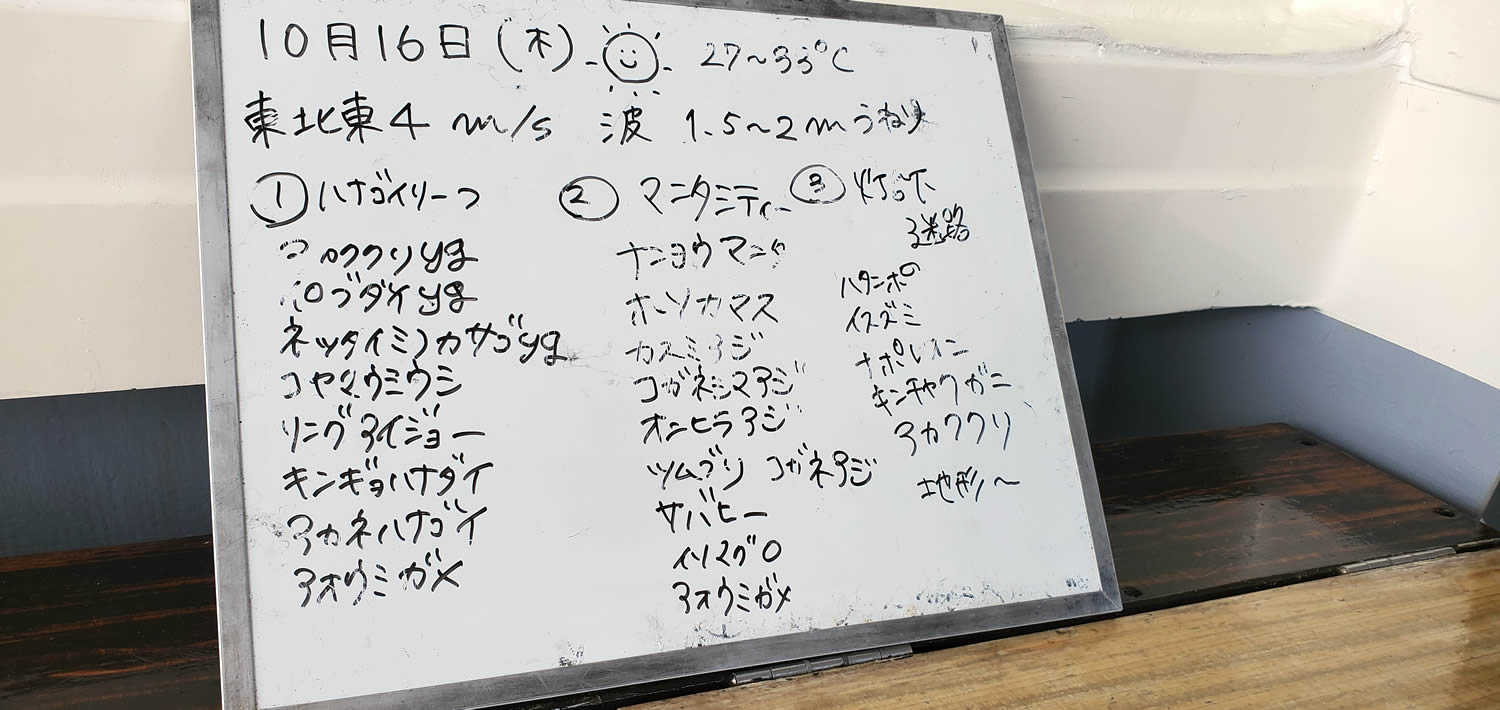 10月16日(木) 27~33℃
東北東4 m/s 波 1.5~2mうねり
① ハナゴイリーフ
アカククリyg
イロブダイyg
ネッタイミノカサゴyg
コヤマウミウシ
リングアイジョー
キンギョハナダイ
アカネハナゴイ
アオウミガメ
② マンタシティー
ナンヨウマンタ
ホソカマス
カスミアジ
コガネシマアジ
オニヒラアジ
ツムブリ コガネアジ
サバヒー
イソマグロ
アオウミガメ
③ 灯台下
迷路
ハタンポの
イスズミ
ナポレオン
キンチャクガニ
アカククリ
地形~